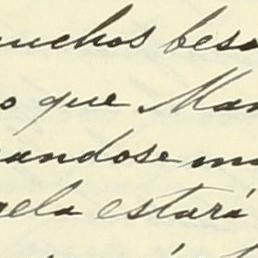 muchos beso
o que Mar
andose m
aela estará